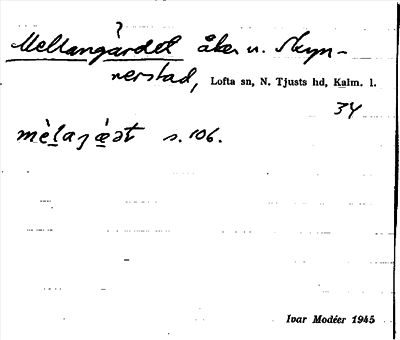 ?
Mellangärdet åker u. Skyn-
nerstad, Lofta sn, N. Tjusts hd, Kalm. l.
34
mèlajǽət s. 106.
Ivar Modéer 1945